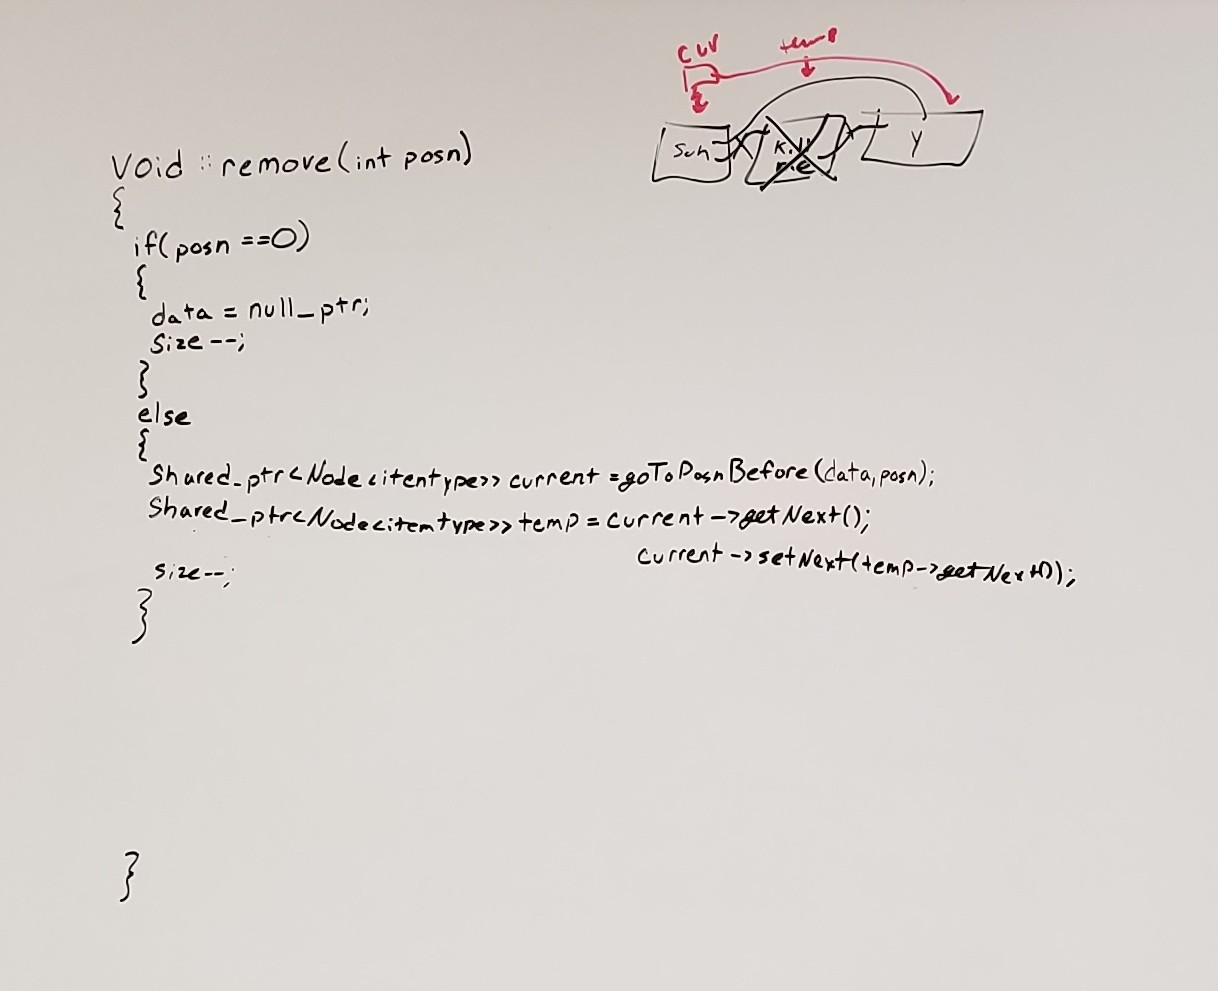 cur temp
Sun Y
void :: remove(int posn)
{
if(posn ==0)
{
data = null_ptr;
size --;
}
else
{
Shared_ptr<Node<itentype>> current = goToPosnBefore(data,posn);
Shared_ptr<Node<itemtype>> temp = current ->getNext();
current -> setNext(temp->getNext());
size--;
}
}